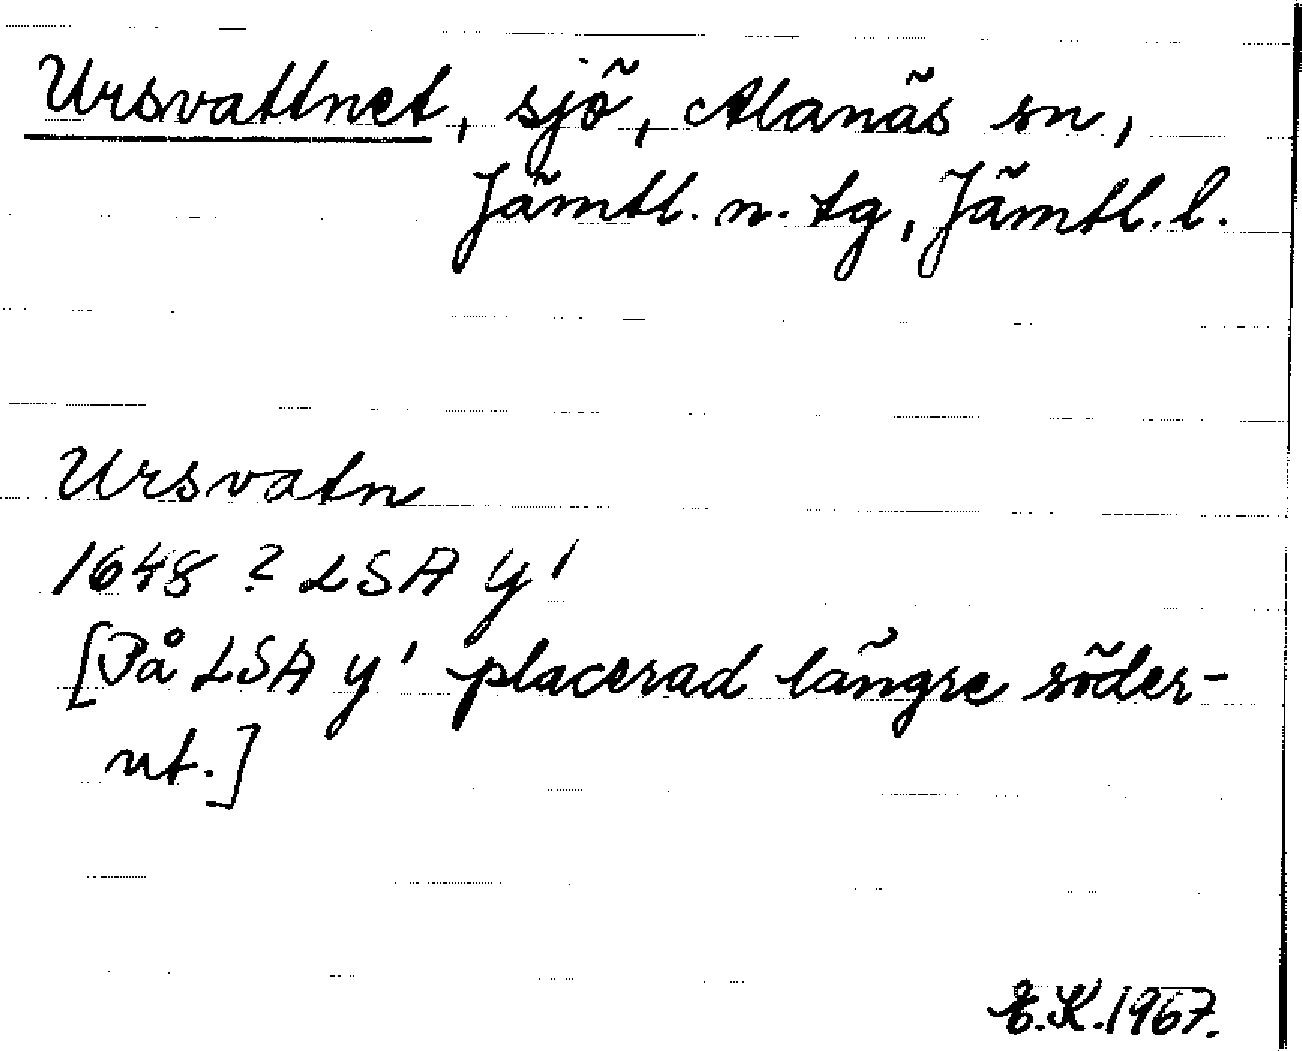 Ursvattnet, sjö, Alanäs sn,
Jämtl. n. tg, Jämtl. l.
Ursvatn
1648 ? LSA Y'
[På LSA Y' placerad längre söder-
ut.]
E.K. 1967.